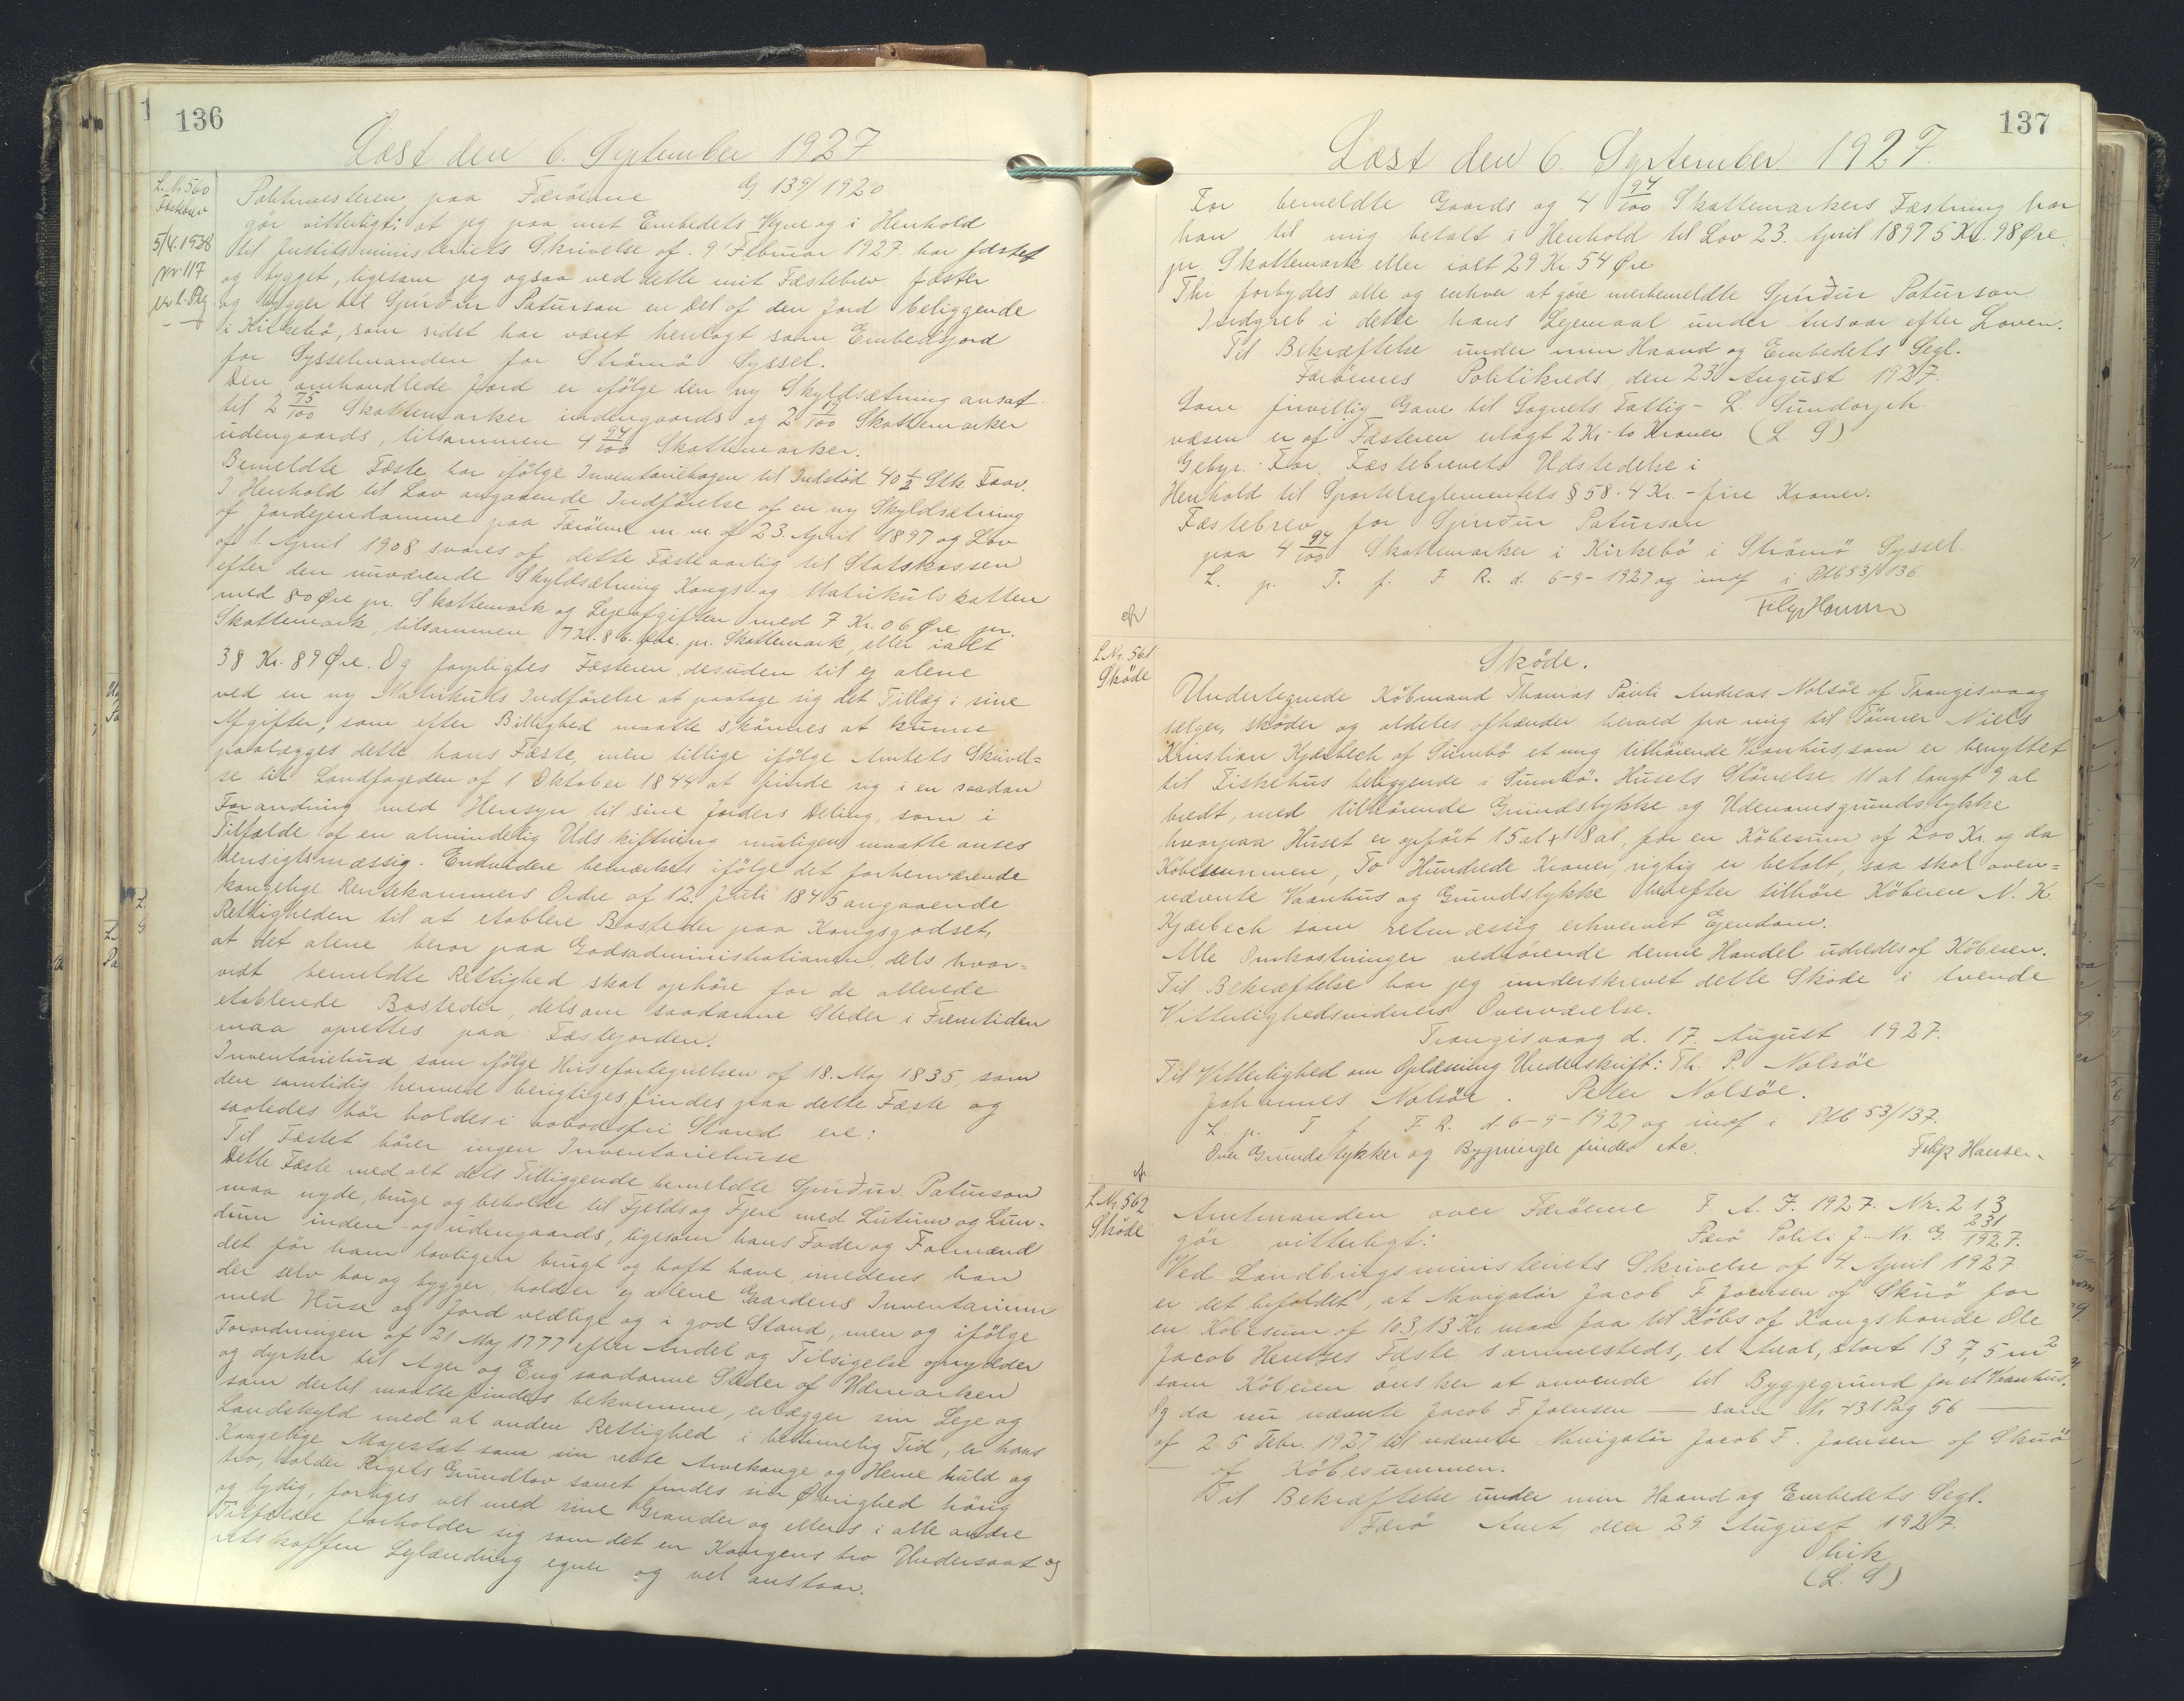 136
Læst den 6. September 1927
L. Nr 560
Fæstebrev
5/4.1938
nr. 117
Politimesteren paa Færöerne G 139/1920
gör vitterligt: at jeg paa mit Embedets Vegne og i Henhold
til Justitsministeriets Skrivelse af 9 Februar 1927 har fæstet
og bygget, ligesom jeg ogsaa ved dette mit Fæstebrev fæster
og bygger til Sjúrður Patursson en Del af den Jord beliggende
i Kirkebö, som sidst har været henlagt som Embedsjord
for Sysselmanden for Strömö Syssel.
Den omhandlede Jord er ifölge den ny Skyldsætning ansat
til 2 75/100 Skattemarker indengaards og 2 19/100 Skattemarker
udengaards, tilsammen 4 94/100 Skattemarker.
Bemeldte Fæste har ifölge Inventariebogen til Indstöd 40 1/2 Stk. Faar.
I Henhold til Lov angaaende Indförelse af en ny Skyldsætning
af Jordejendomme paa Færöerne m. m. af 23. April 1897 og Lov
af 1. April 1908 svares af dette Fæste aarlig til Statskassen
efter den nuværende Skyldsætning Kongs- og Matrikulskatten
med 80 Øre pr. Skattemark og Lejeafgiften med 7 Kr. 06 Øre pr.
Skattemark, tilsammen 7 Kr. 86 Øre pr. Skattemark, eller ialt
38 Kr. 89 Øre. Og forpligtes Fæsteren desuden til ej alene
ved en ny Matrikuls Indförelse at paatage sig det Tillæg i sine
Afgifter, som efter Billighed maatte skönnes at kunne
paalægges dette hans Fæste, men tillige ifölge Amtets Skrivel=
se til Landfogeden af 1 Oktober 1844 at finde sig i en saadan
Forandring med Hensyn til sine Jorders Deling, som i
Tilfælde af en almindelig Udskiftning muligen maatte anses
hensigtsmæssig. Endvidere bemærkes ifölge det forhenværende
kongelige Rentekammers Ordre af 12. Juli 1845 angaaende
Rettigheden til at etablere Bosteder paa Kongsgodset,
at det alene beror paa Godsadministrationen, dels hvor=
vidt bemeldte Rettighed skal ophöre for de allerede
etablerede Bosteder, dels om saadanne Steder i Fremtiden
maa oprettes paa Fæstejorden.
Inventariehuse, som ifölge Husefortegnelsen af 18. Maj 1835, som
den samtidig hermed berigtiges findes paa dette Fæste og
saaledes bör holdes i aabodsfri Stand ere:
Til Fæstet hörer ingen Inventariehuse
Dette Fæste med alt dets Tilliggende bemeldte Sjúrður Patursson
maa nyde, bruge og beholde til Fjelds og Fjere med Lutum og Lun=
dum inden- og udengaards, ligesom hans Fader og Formænd
det för ham lovligen brugt og haft have, imedens han
der selv bor og bygger, holder ej alene Gaardens Inventarium
med Huse og Jord vedlige og i god Stand, men og ifölge
Forordningen af 21 Maj 1777 efter Andel og Tilsigelse oprydder
og dyrker til Ager og Eng saadanne Steder af Udmarken
som dertil maatte findes bekvemme, erlægger sin Leje og
Landskyld med al anden Rettighed i betimelig Tid, er hans
Kongelige Majestæt som sin rette Arvekonge og Herre huld og
tro, holder Rigets Grundlov samt findes sin Øvrighed hörig
og lydig, forliges vel med sine Grander og ellers i alle andre
Tilfælde forholder sig som det en Kongens tro Undersaat og
retskaffen Lejlænding egner og vel anstaar.
137
Læst den 6 September 1927.
For bemeldte Gaards og 4 94/100 Skattemarkers Fæstning har
han til mig betalt i Henhold til Lov 23. April 1897 5 Kr. 98 Øre
pr. Skattemark eller ialt 29 Kr. 54 Øre
Thi forbydes alle og enhver at göre merbemeldte Sjúrður Patursson
Indgreb i dette hans Lejemaal under Ansvar efter Loven.
Til Bekræftelse under min Haand og Embedets Segl.
Færöernes Politikreds, den 23 August 1927.
Som frivillig Gave til Sognets Fattig- L. Sundorph
væsen er af Fæsteren erlagt 2 Kr. to Kroner (L S)
Gebyr. For Fæstebrevets Udstedelse i
Henhold til Sportelreglementets § 58. 4 Kr. - fire Kroner.
Fæstebrev for Sjúrður Patursson
paa 4 94/100 Skattemarker i Kirkebö i Strömö Syssel.
L. p. T. f. F R. d. 6-9-1927 og indf i Ptb 53/136
Filip Hansen
L Nr. 561
Sköde
Sköde.
Undertegnede Köbmand Thomas Pauli Andreas Nolsöe af Trangisvaag
sælger, sköder og aldeles afhænder herved fra mig til Tömrer Niels
Kristian Kjærbech af Sumbö et mig tilhörende Vaanhus, som er benyttet
til Fiskehus beliggende i Sumbö. Husets Störrelse 11 al langt 9 al
bredt, med tilhörende Grundstykke og Udenomsgrundstykke
hvorpaa Huset er opfört 15 al + 18 al, for en Köbesum af 200 Kr. og da
Köbesummen, To Hundrede Kroner, rigtig er betalt, saa skal oven=
nævnte Vaanhus og Grundstykke herefter tilhöre Köberen N. K
Kjærbech som retmæssig erhvervet Ejendom.
Alle Omkostninger vedrörende denne Handel udredes af Köberen.
Til Bekræftelse har jeg underskrevet dette Sköde i tvende
Vitterlighedsvidners Overværelse.
Trangisvaag d. 17. August 1927.
Til Vitterlighed om Oplæsning Underskrift: Th. P. Nolsöe
Johannes Nolsöe. Peter Nolsöe.
L. p. T f F. R. d 6-9-1927 og indf i Ptb 53/137.
Over Grundstykker og Bygninger findes etc.
Filip Hansen
L Nr 562
Sköde
Amtmanden over Færöerne F. A. J. 1927. Nr. 213
gör vitterligt: Færö Politi J. Nr. G. 231/1927.
Ved Landbrugsministeriets Skrivelse af 4. April 1927
er det befaldet, at Navigatör Jacob F. Joensen af Skuö for
en Köbesum af 103,13 Kr maa faa til Köbs af Kongsbonde Ole
Jacob Hentzes Fæste sammesteds, et Areal, stort 137,5 m²
som Köberen önsker at anvende til Byggegrund for et Vaanhus.
og da nu nævnte Jacob F Joensen — som Nr 431 Pag 56 —
af 25 Febr. 1927 til nævnte Navigatör Jacob F. Joensen af Skuö
— af Köbesummen.
Til Bekræftelse under min Haand og Embedets Segl.
Færö Amt, den 29 August 1927.
(L. S)